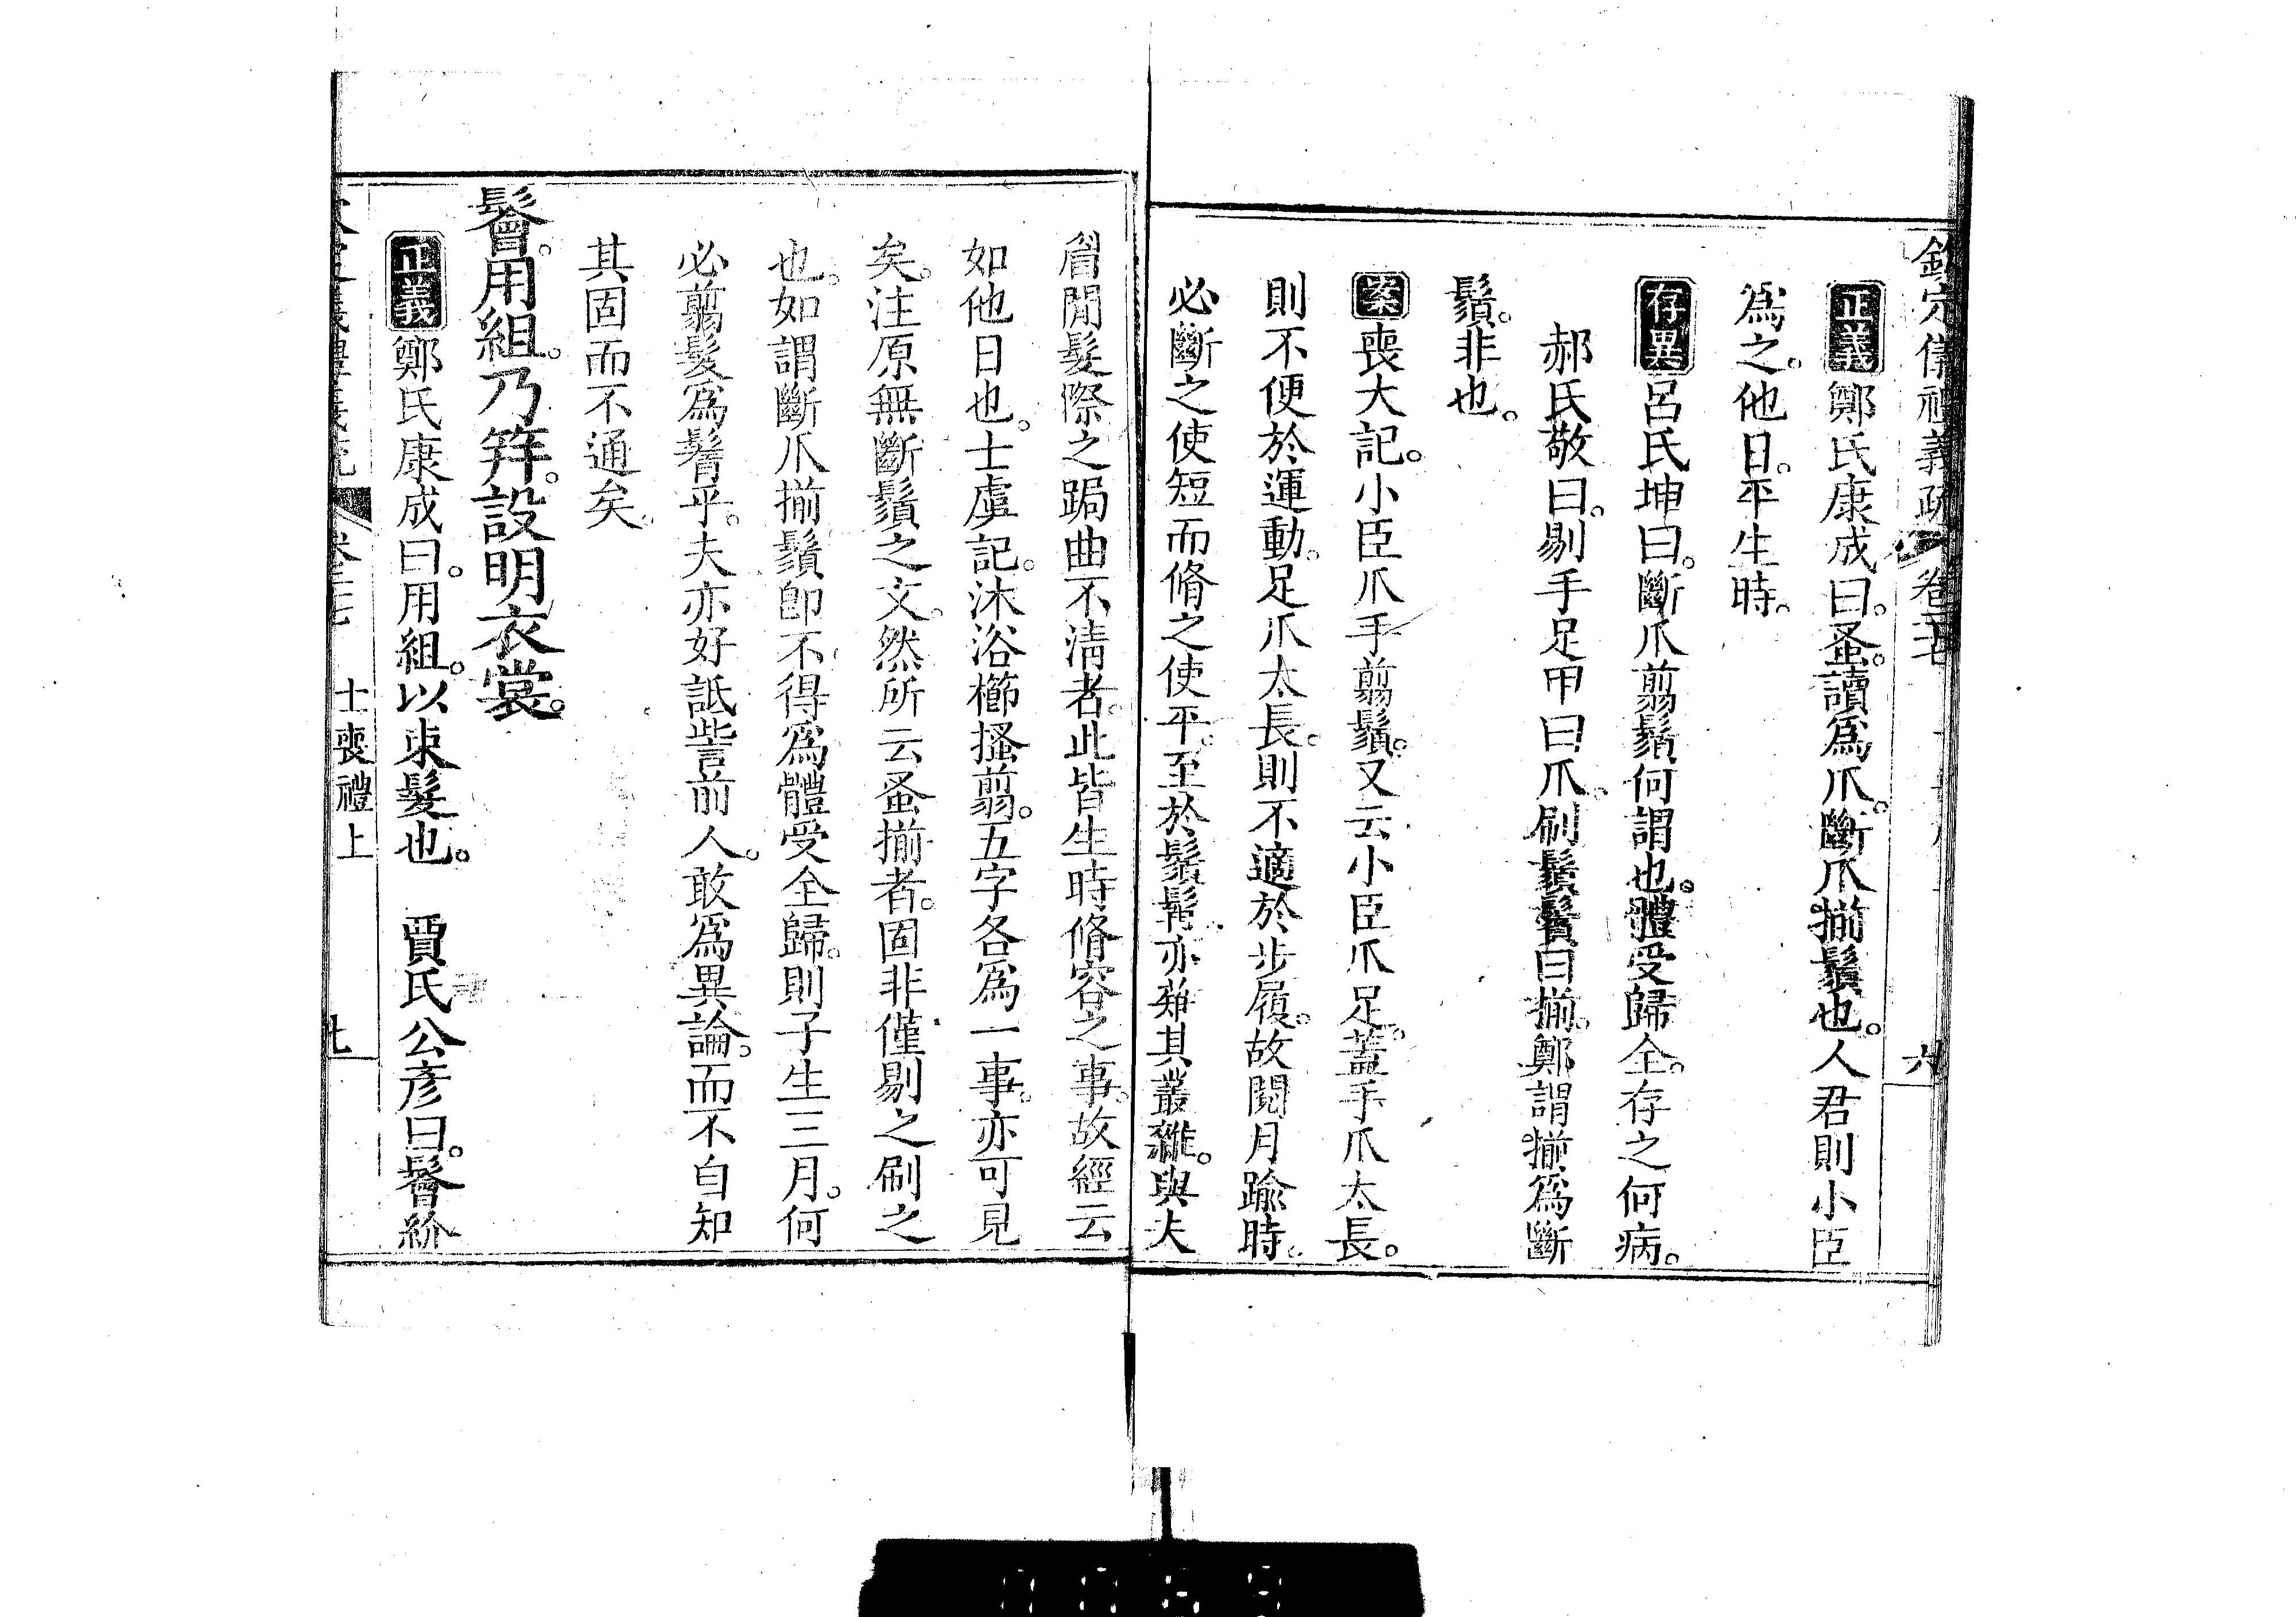 欽定儀禮義疏　卷二十七　六
正義鄭氏康成曰。蚤。讀爲爪。斷爪揃鬚也。人君則小臣
爲之。他日。平生時。
存異呂氏坤曰。斷爪翦鬚何謂也。體受歸全。存之何病。
郝氏敬曰。剔手足甲曰爪。刷鬚鬢曰揃。鄭謂揃爲斷
鬚。非也。
案喪大記。小臣爪手翦鬚。又云小臣爪足。蓋手爪太長。
則不便於運動。足爪太長。則不適於步履。故閱月踰時。
必斷之使短而脩之使平。至於鬚髯。亦薙其叢雜。與夫
眉閒髮際之跼曲不淸者。此皆生時脩容之事。故經云
如他日也。士虞記。沐浴櫛搔翦。五字各爲一事。亦可見
矣。注原無斷鬚之文。然所云蚤揃者。固非僅剔之刷之
也。如謂斷爪揃鬚卽不得爲體受全歸。則子生三月。何
必翦髮爲鬌乎。夫亦好詆訾前人。敢爲異論。而不自知
其固而不通矣。
鬠。用組。乃笄。設明衣裳。
正義鄭氏康成曰。用組。以束髮也。　賈氏公彥曰。鬠紒
士喪禮上　七